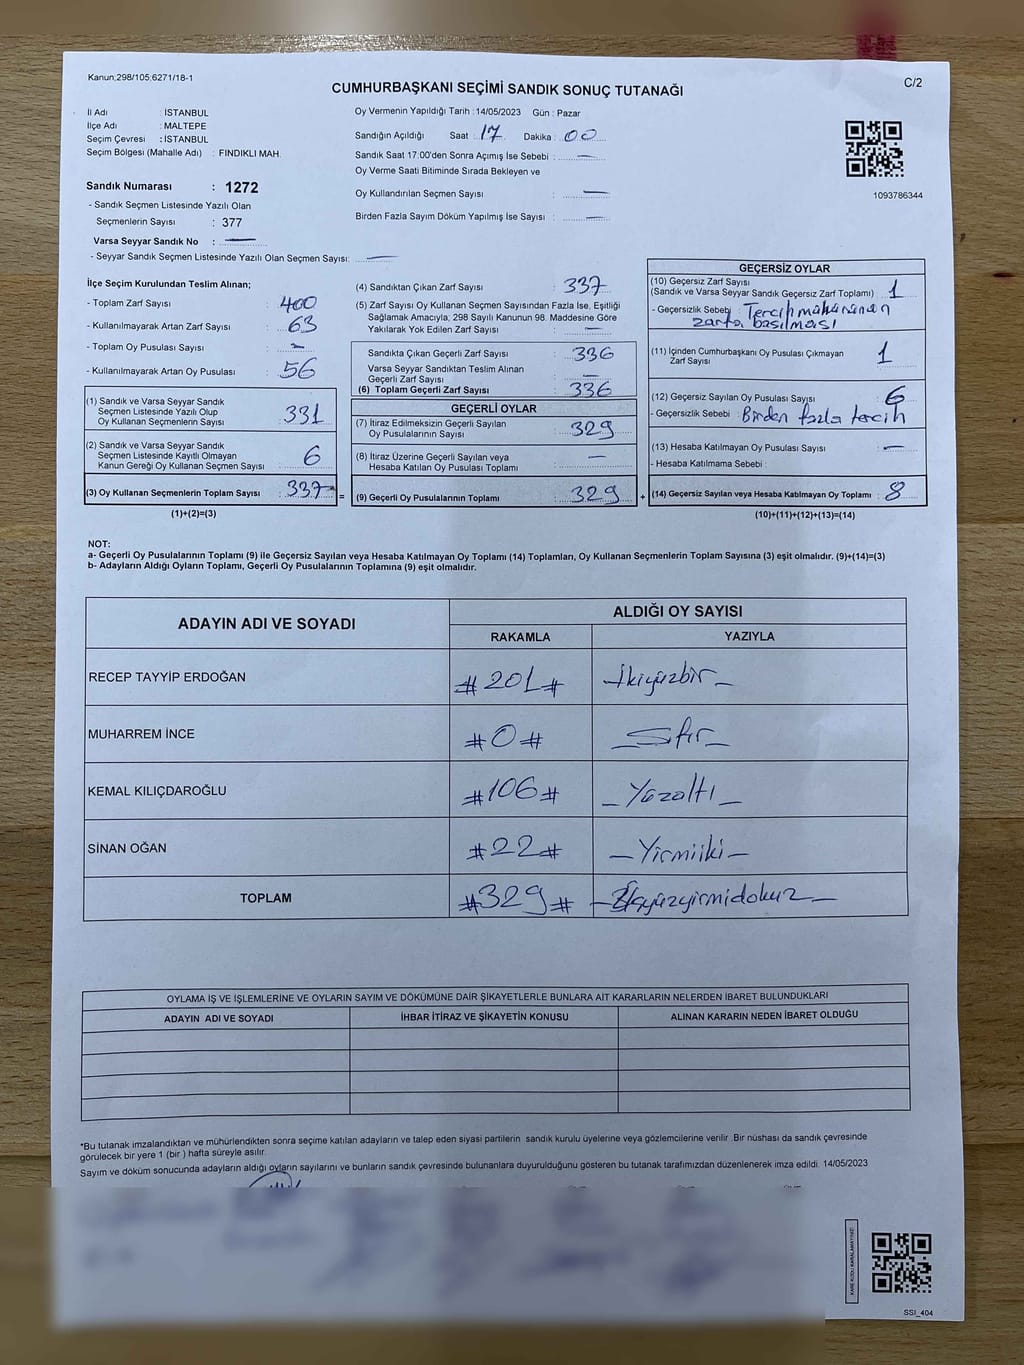 Kanun;298/105;6271/18-1
C/2
CUMHURBAŞKANI SEÇİMİ SANDIK SONUÇ TUTANAĞI
İl Adı : İSTANBUL
İlçe Adı : MALTEPE
Seçim Çevresi : İSTANBUL
Seçim Bölgesi (Mahalle Adı) : FINDIKLI MAH.
Sandık Numarası : 1272
- Sandık Seçmen Listesinde Yazılı Olan
Seçmenlerin Sayısı : 377
Varsa Seyyar Sandık No : —
- Seyyar Sandık Seçmen Listesinde Yazılı Olan Seçmen Sayısı: —
Oy Vermenin Yapıldığı Tarih : 14/05/2023 Gün : Pazar
Sandığın Açıldığı Saat : 17 Dakika : 00
Sandık Saat 17:00'den Sonra Açımış İse Sebebi : —
Oy Verme Saati Bitiminde Sırada Bekleyen ve
Oy Kullandırılan Seçmen Sayısı : —
Birden Fazla Sayım Döküm Yapılmış İse Sayısı : —
1093786344
İlçe Seçim Kurulundan Teslim Alınan;
- Toplam Zarf Sayısı : 400
- Kullanılmayarak Artan Zarf Sayısı : 63
- Toplam Oy Pusulası Sayısı :
- Kullanılmayarak Artan Oy Pusulası : 56
(1) Sandık ve Varsa Seyyar Sandık
Seçmen Listesinde Yazılı Olup
Oy Kullanan Seçmenlerin Sayısı : 331
(2) Sandık ve Varsa Seyyar Sandık
Seçmen Listesinde Kayıtlı Olmayan
Kanun Gereği Oy Kullanan Seçmen Sayısı : 6
(3) Oy Kullanan Seçmenlerin Toplam Sayısı : 337 =
(1)+(2)=(3)
(4) Sandıktan Çıkan Zarf Sayısı : 337
(5) Zarf Sayısı Oy Kullanan Seçmen Sayısından Fazla İse, Eşitliği
Sağlamak Amacıyla; 298 Sayılı Kanunun 98. Maddesine Göre
Yakılarak Yok Edilen Zarf Sayısı : —
Sandıkta Çıkan Geçerli Zarf Sayısı : 336
Varsa Seyyar Sandıktan Teslim Alınan
Geçerli Zarf Sayısı : —
(6) Toplam Geçerli Zarf Sayısı : 336
GEÇERLİ OYLAR
(7) İtiraz Edilmeksizin Geçerli Sayılan
Oy Pusulalarının Sayısı : 329
(8) İtiraz Üzerine Geçerli Sayılan veya
Hesaba Katılan Oy Pusulası Toplamı : —
(9) Geçerli Oy Pusulalarının Toplamı : 329 +
GEÇERSİZ OYLAR
(10) Geçersiz Zarf Sayısı
(Sandık ve Varsa Seyyar Sandık Geçersiz Zarf Toplamı) : 1
- Geçersizlik Sebebi : Tercih mühürünün
zarfa basılması
(11) İçinden Cumhurbaşkanı Oy Pusulası Çıkmayan
Zarf Sayısı : 1
(12) Geçersiz Sayılan Oy Pusulası Sayısı : 6
- Geçersizlik Sebebi : Birden fazla tercih
(13) Hesaba Katılmayan Oy Pusulası Sayısı : —
- Hesaba Katılmama Sebebi :
(14) Geçersiz Sayılan veya Hesaba Katılmayan Oy Toplamı : 8
(10)+(11)+(12)+(13)=(14)
NOT:
a- Geçerli Oy Pusulalarının Toplamı (9) ile Geçersiz Sayılan veya Hesaba Katılmayan Oy Toplamı (14) Toplamları, Oy Kullanan Seçmenlerin Toplam Sayısına (3) eşit olmalıdır. (9)+(14)=(3)
b- Adayların Aldığı Oyların Toplamı, Geçerli Oy Pusulalarının Toplamına (9) eşit olmalıdır.
ADAYIN ADI VE SOYADI
ALDIĞI OY SAYISI
RAKAMLA YAZIYLA
RECEP TAYYİP ERDOĞAN #201# –İkiyüzbir–
MUHARREM İNCE #0# –Sıfır–
KEMAL KILIÇDAROĞLU #106# –Yüzaltı–
SİNAN OĞAN #22# –Yirmiiki–
TOPLAM #329# –Üçyüzyirmidokuz–
OYLAMA İŞ VE İŞLEMLERİNE VE OYLARIN SAYIM VE DÖKÜMÜNE DAİR ŞİKAYETLERLE BUNLARA AİT KARARLARIN NELERDEN İBARET BULUNDUKLARI
ADAYIN ADI VE SOYADI İHBAR İTİRAZ VE ŞİKAYETİN KONUSU ALINAN KARARIN NEDEN İBARET OLDUĞU
*Bu tutanak imzalandıktan ve mühürlendikten sonra seçime katılan adayların ve talep eden siyasi partilerin sandık kurulu üyelerine veya gözlemcilerine verilir. Bir nüshası da sandık çevresinde
görülecek bir yere 1 (bir ) hafta süreyle asılır.
Sayım ve döküm sonucunda adayların aldığı oyların sayılarını ve bunların sandık çevresinde bulunanlara duyurulduğunu gösteren bu tutanak tarafımızdan düzenlenerek imza edildi. 14/05/2023
KARE KODU KARALAMAYINIZ!
SSI_404